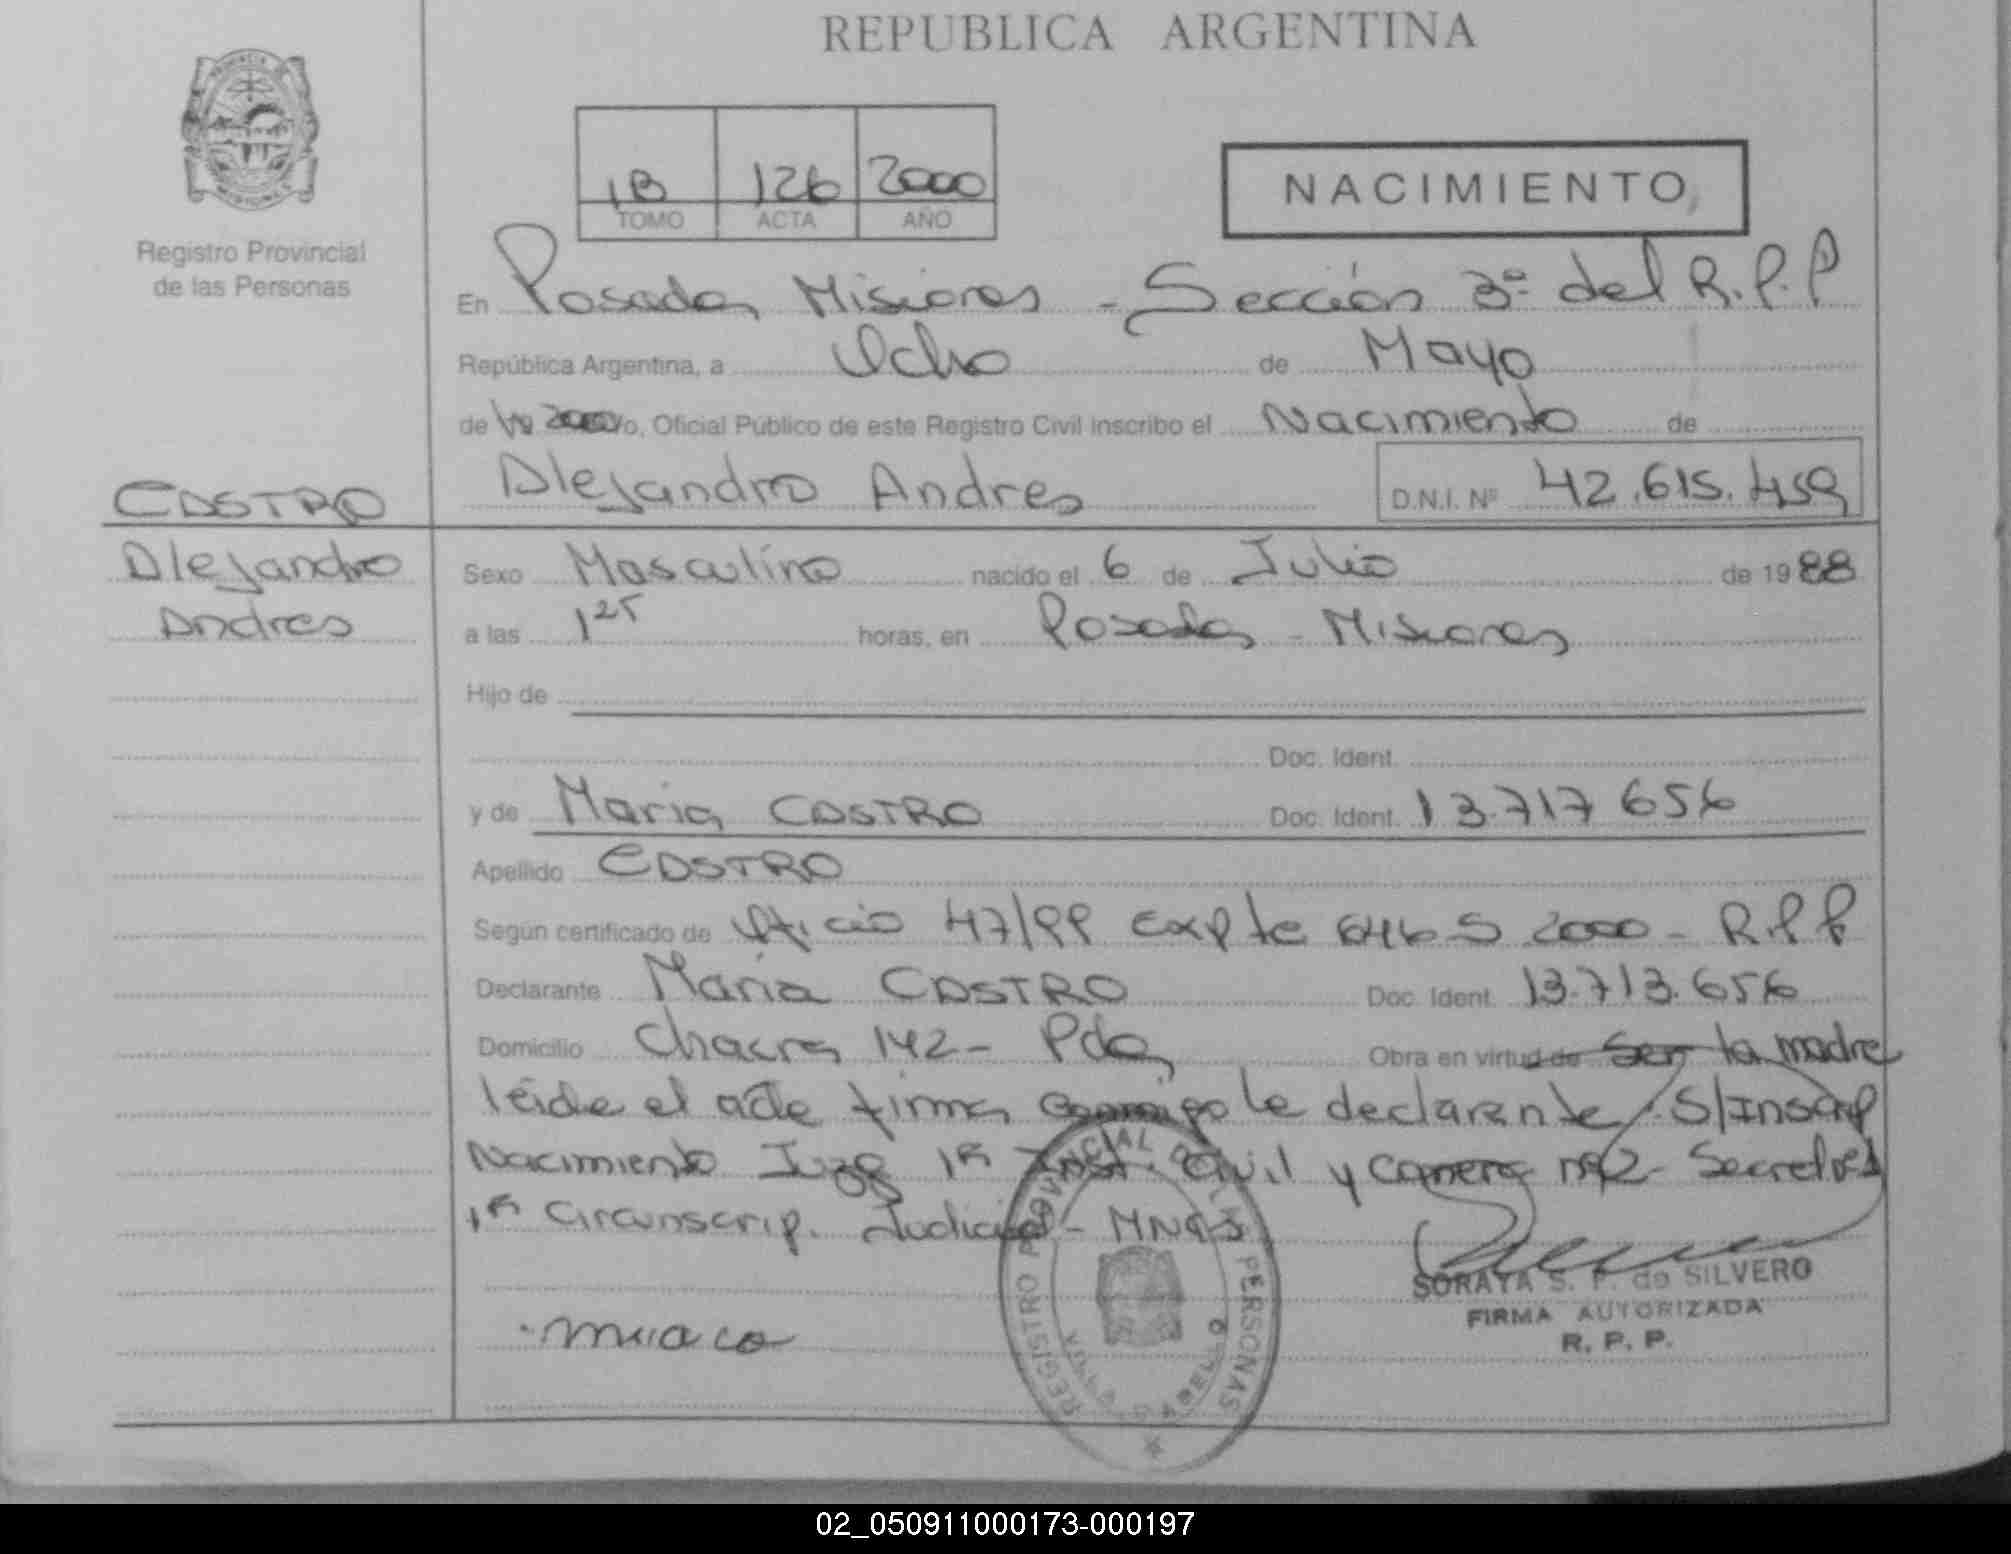 REPUBLICA ARGENTINA
Registro Provincial
de las Personas
1B 126 2000
TOMO ACTA AÑO
NACIMIENTO
En Posadas Misiones - Sección 3º del R.P.P
República Argentina, a Ocho de Mayo
de 2000 yo, Oficial Público de este Registro Civil Inscribo el Nacimiento de
Alejandro Andres D.N.I. Nº 42.615.459
CASTRO
Alejandro
Andres
Sexo Masculino nacido el 6 de Julio de 1988
a las 1 25 horas, en Posadas - Misiones
Hijo de
Doc. Ident.
y de Maria CASTRO Doc. Ident. 13.717 656
Apellido CASTRO
Según certificado de Oficio 47/99 Expte 646 S 2000 - R.P.P
Declarante Maria CASTRO Doc. Ident. 13.713.656
Domicilio Chacra 142 - Pdas Obra en virtud de Ser la madre
leida el acta firma conmigo la declarante S/Inscrip
Nacimiento Juzg 1ª Inst. Civil y Comerc Nº2 - Secret Nº1
1ª Circunscrip. Judicial - MNES
SORAYA S. F. de SILVERO
FIRMA AUTORIZADA
R. P. P.
REGISTRO PROVINCIAL DE LAS PERSONAS
02_050911000173-000197